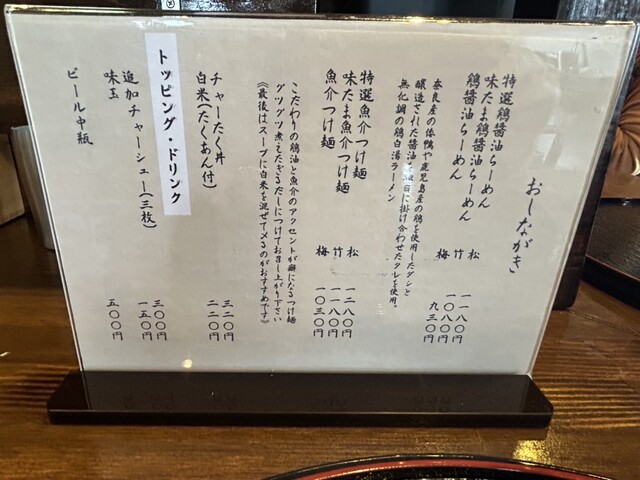 おしながき
特選鶏醤油らーめん 松 一一八〇円
味たま鶏醤油らーめん 竹 一〇八〇円
鶏醤油らーめん 梅 九三〇円
奈良産の倭鴨や鹿児島産の鶏を使用したダシと
醸造された醤油を独自に掛け合わせたタレを使用。
無化調の鶏白湯ラーメン
特選魚介つけ麺 松 一二八〇円
味たま魚介つけ麺 竹 一一八〇円
魚介つけ麺 梅 一〇三〇円
こだわりの鶏油と魚介のアクセントが癖になるつけ麺
グツグツ煮えたぎるだしにつけてお召し上がり下さい
《最後はスープに白米を混ぜて〆るのがおすすめです》
チャーたく丼 三二〇円
白米(たくあん付) 二二〇円
トッピング・ドリンク
追加チャーシュー(三枚) 三〇〇円
味玉 一五〇円
ビール中瓶 五〇〇円